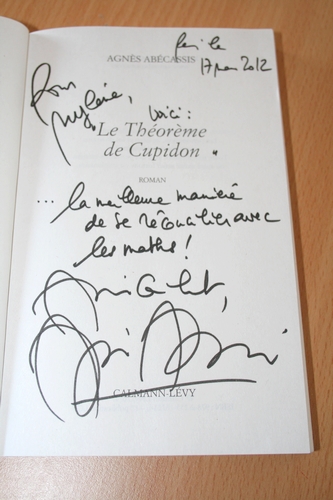 AGNÈS ABÉCASSIS
17 mai 2012
Pour
Mylène,
voici :
"Le Théorème
de Cupidon".
ROMAN
... la meilleure manière
de se réconcilier avec
les maths !
Amicalement,
CALMANN-LÉVY